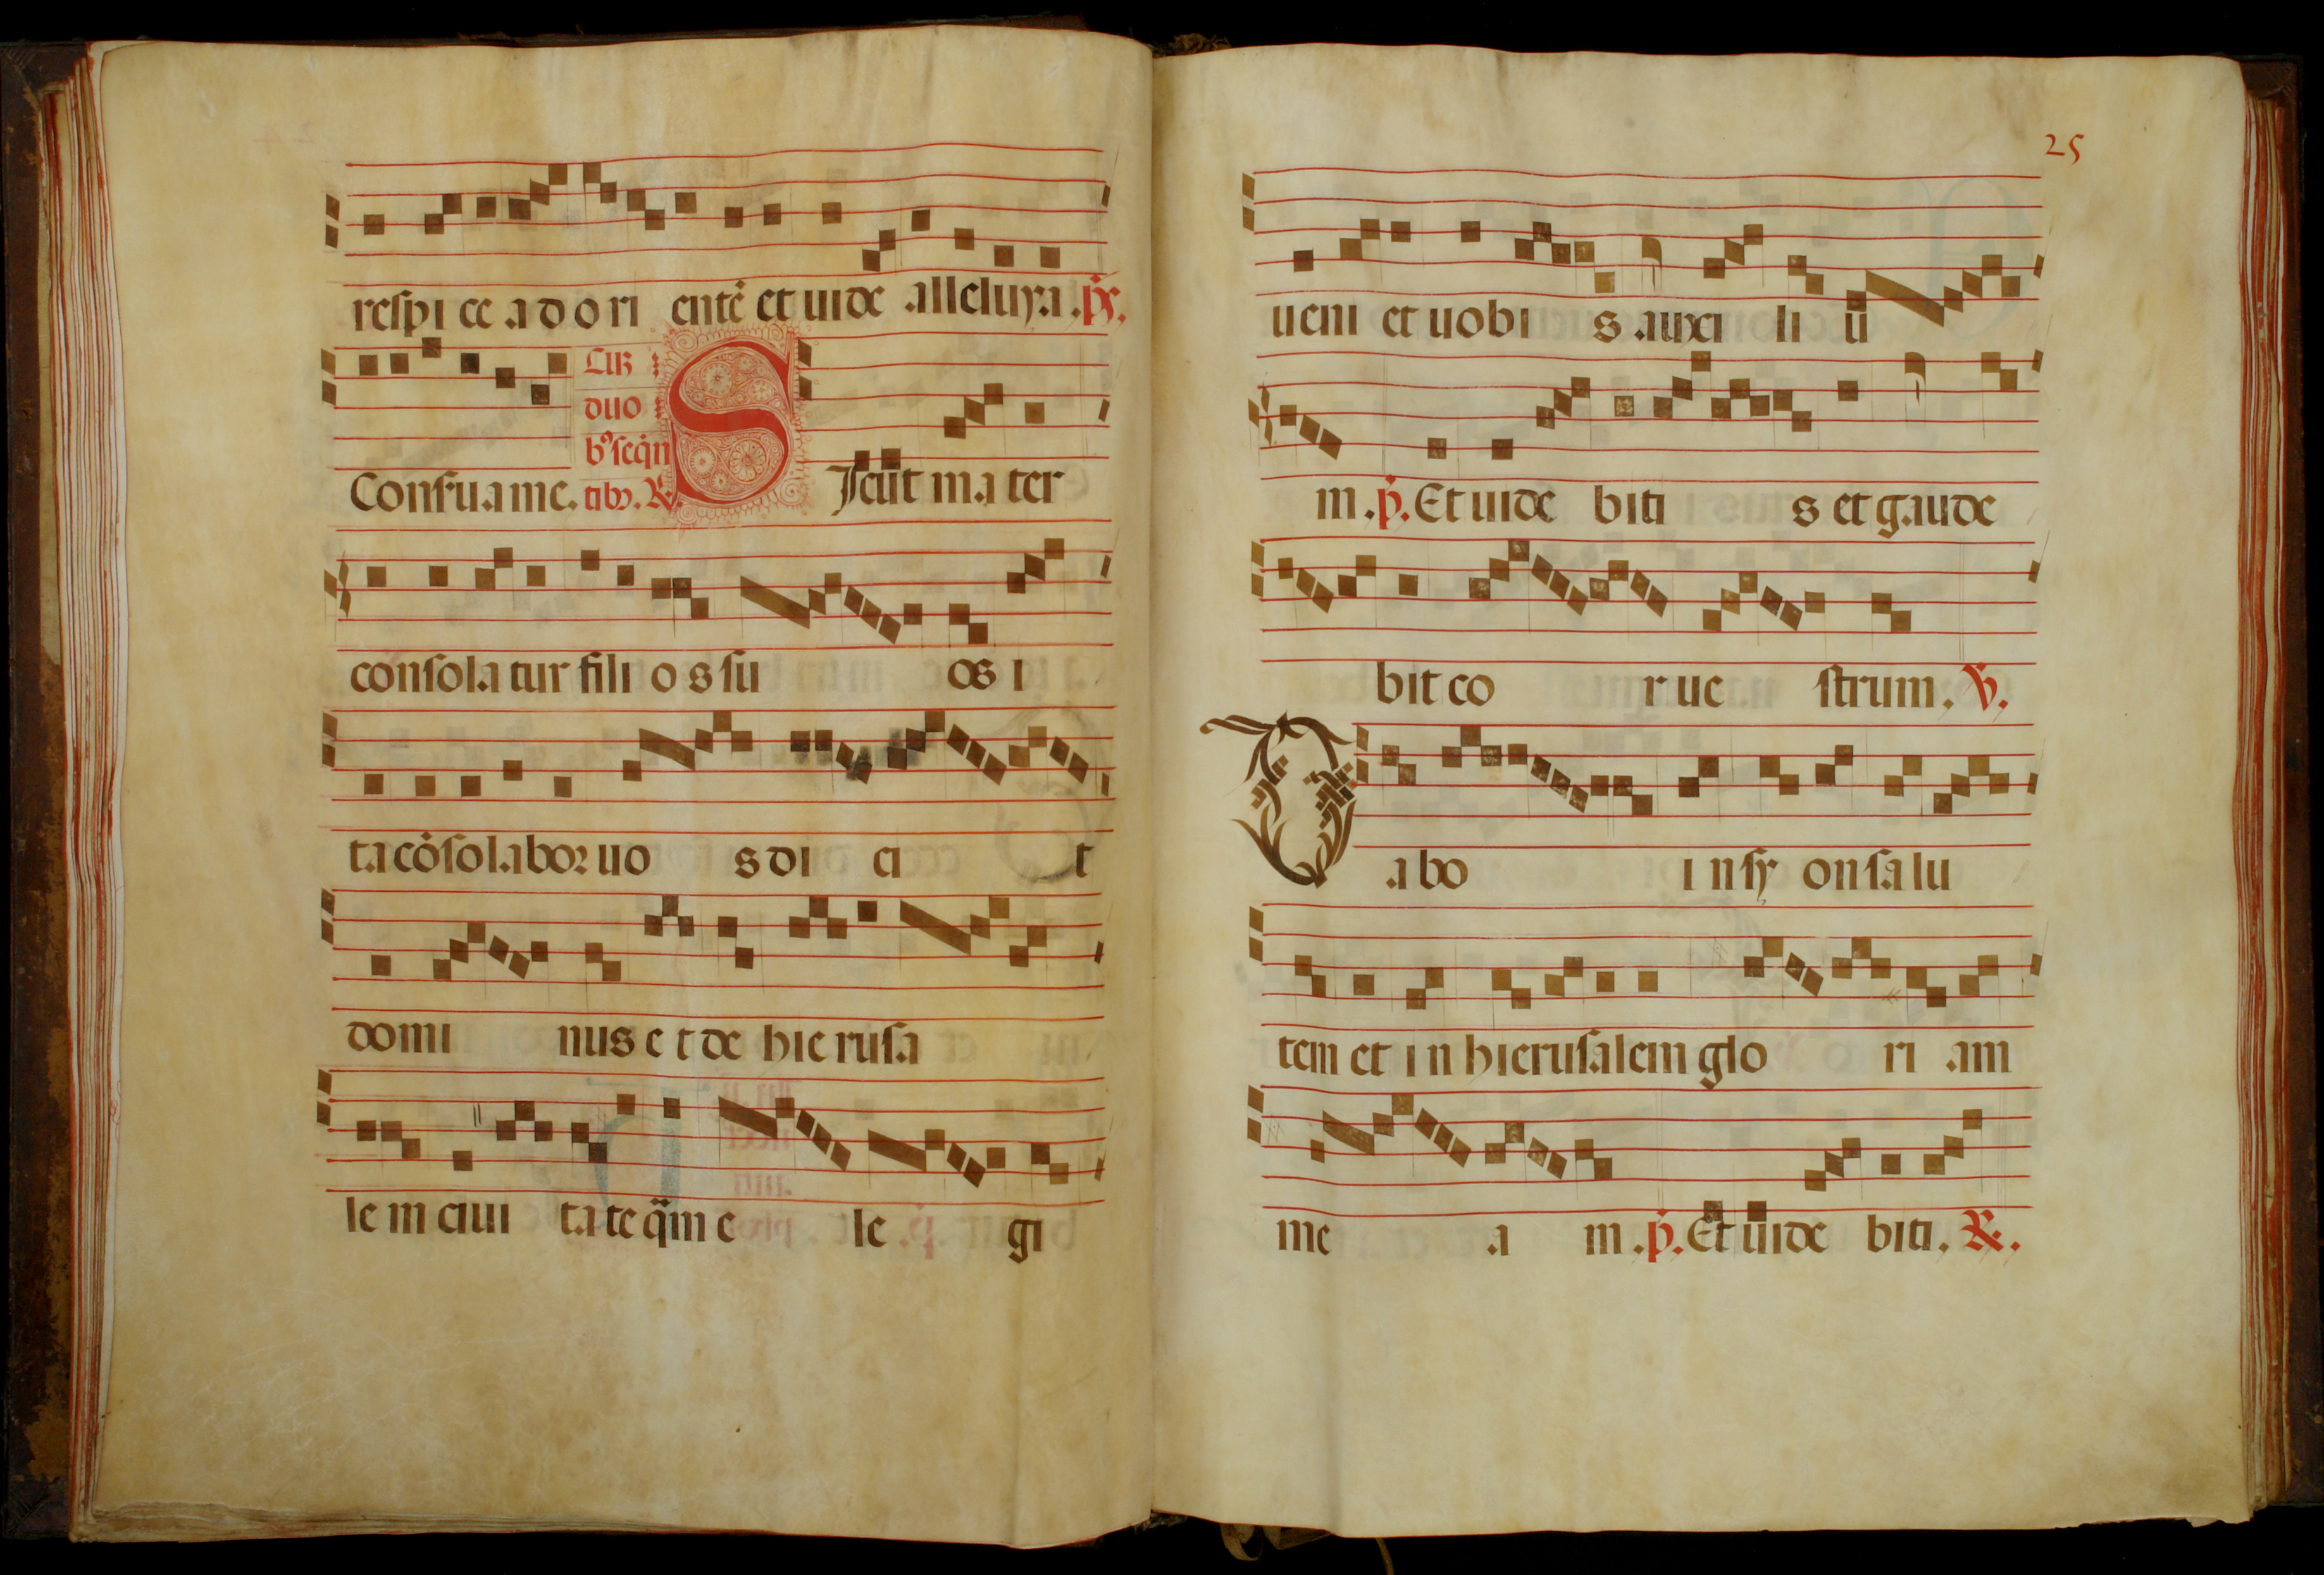 respice ad ori entē et uide alleluya. p̄s.
Cum
duo
bꝰ seqn̄
Conserua me. tibꝫ. ℟. Sicut mater
consolatur filios su os i
ta cōsolabor uo s di ci t
domi nus et de hierusa
lem ciui tate quā e le gi
25
ueni et uobi s auxi li ū
m. p̄. Et uide biti s et gaude
bit co r ue strum. ℣.
Dabo in syon salu
tem et in hierusalem glo ri am
me a m. p̄. Et uide biti. ℟.